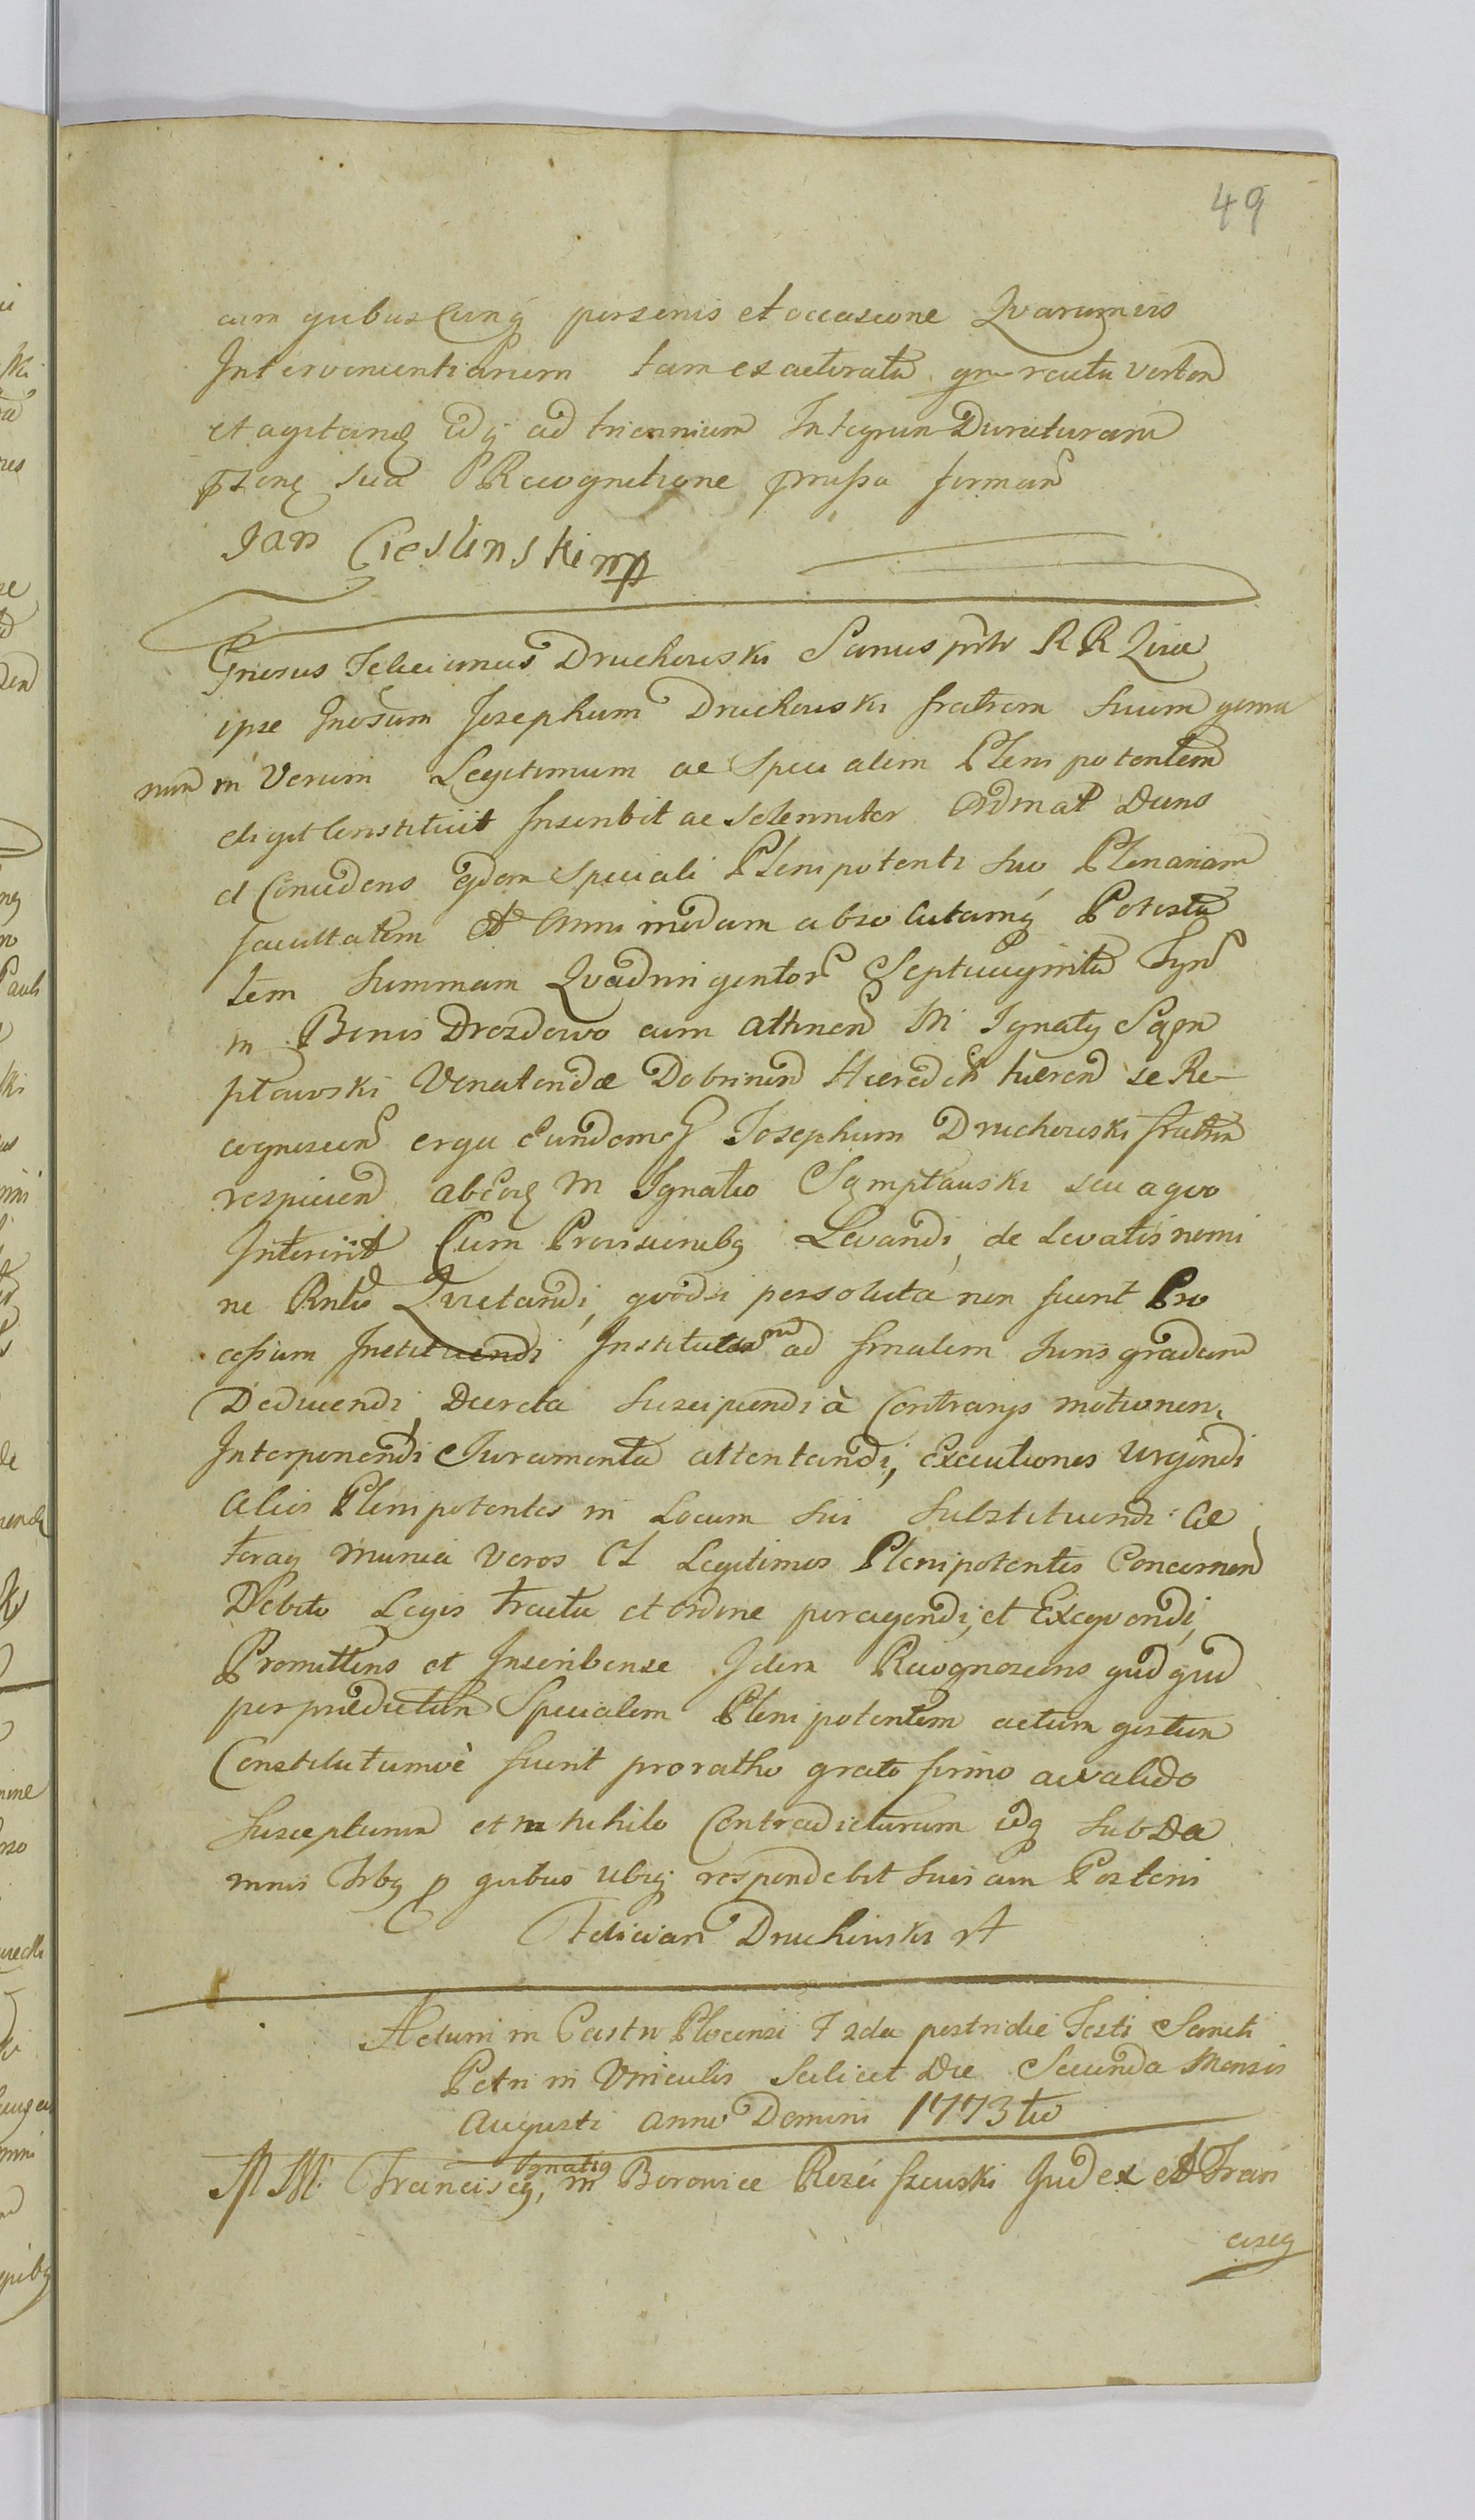 49
cum quibus Cunq personis et occasione Quarumvis
Intervenientiarum tam ex actoratu qm reatu verten
et agitanđ idq ad triennium Integrum Duraturam
sua Recognitione prmissa firman
Jan Cieslinski mp
Gnrosus Felicianus Druchowski Sanus prtr R R Qiia
ipse Gnosum Josephum Druchowski fratrem suum germa
num in Verum Legitimum ac Specialem Plenipotentem
eligit Constituit Inscribit ac solenniter Ordinat Dans
et Concedens eidem speciali Plenipotenti suo Plenariam
facultatem et Omnimodam absolutamq Potesta
tem Summam Quadringentor Septuaginta Tyn
in Bonis Drozdowo cum attinen M Ignaty
ptawski Venatoridæ Dobrinen Hæredeis hæren se Re-
cognoscen erga Eundemq Josephum Druchowski fratrem
respicien ab eod M Ignatio Szmptawski seu a quo
Intererit Cum Provisionibq Levandi, de Levatis nomi
ne Rntis Quietandi, quodsi persoluta non fuerit Pro
cessum Instituendi Institutum ad finalem Iuris gradum
Deducendi, Decreta suscipiendi à Contrarys motionen.
Interponendi Iuramenta attentandi, Executiones Urgendi
Alios Plenipotentes in Locum sui Substituendi Cæ
teraq munia Veros et Legitimos Plenipotentes Concernen
Debito Legis tractu et ordine peragendi, et Exequendi,
Promittens et Inscribens se Idem Recognoscens quid quid
per prædictum Specialem Plenipotentem actum gestum
Constitutumve fuerit pro ratho grato firmo ac valido
Suscepturum et in nihilo Contradicturum idq sub Da
mnis Trbq p quibus ubiq respondebit suis cum Posteris
Felician Druchowski
Actum in Castro Plocensi F 2da postridie Festi Sancti
Petri in Vinculis scilicet Die Secunda Mensis
Augusti anno Domini 1773tio
M M. Franciscq, Ignatiq in Borowice Roséiszewski Judex et Fran
ciscq